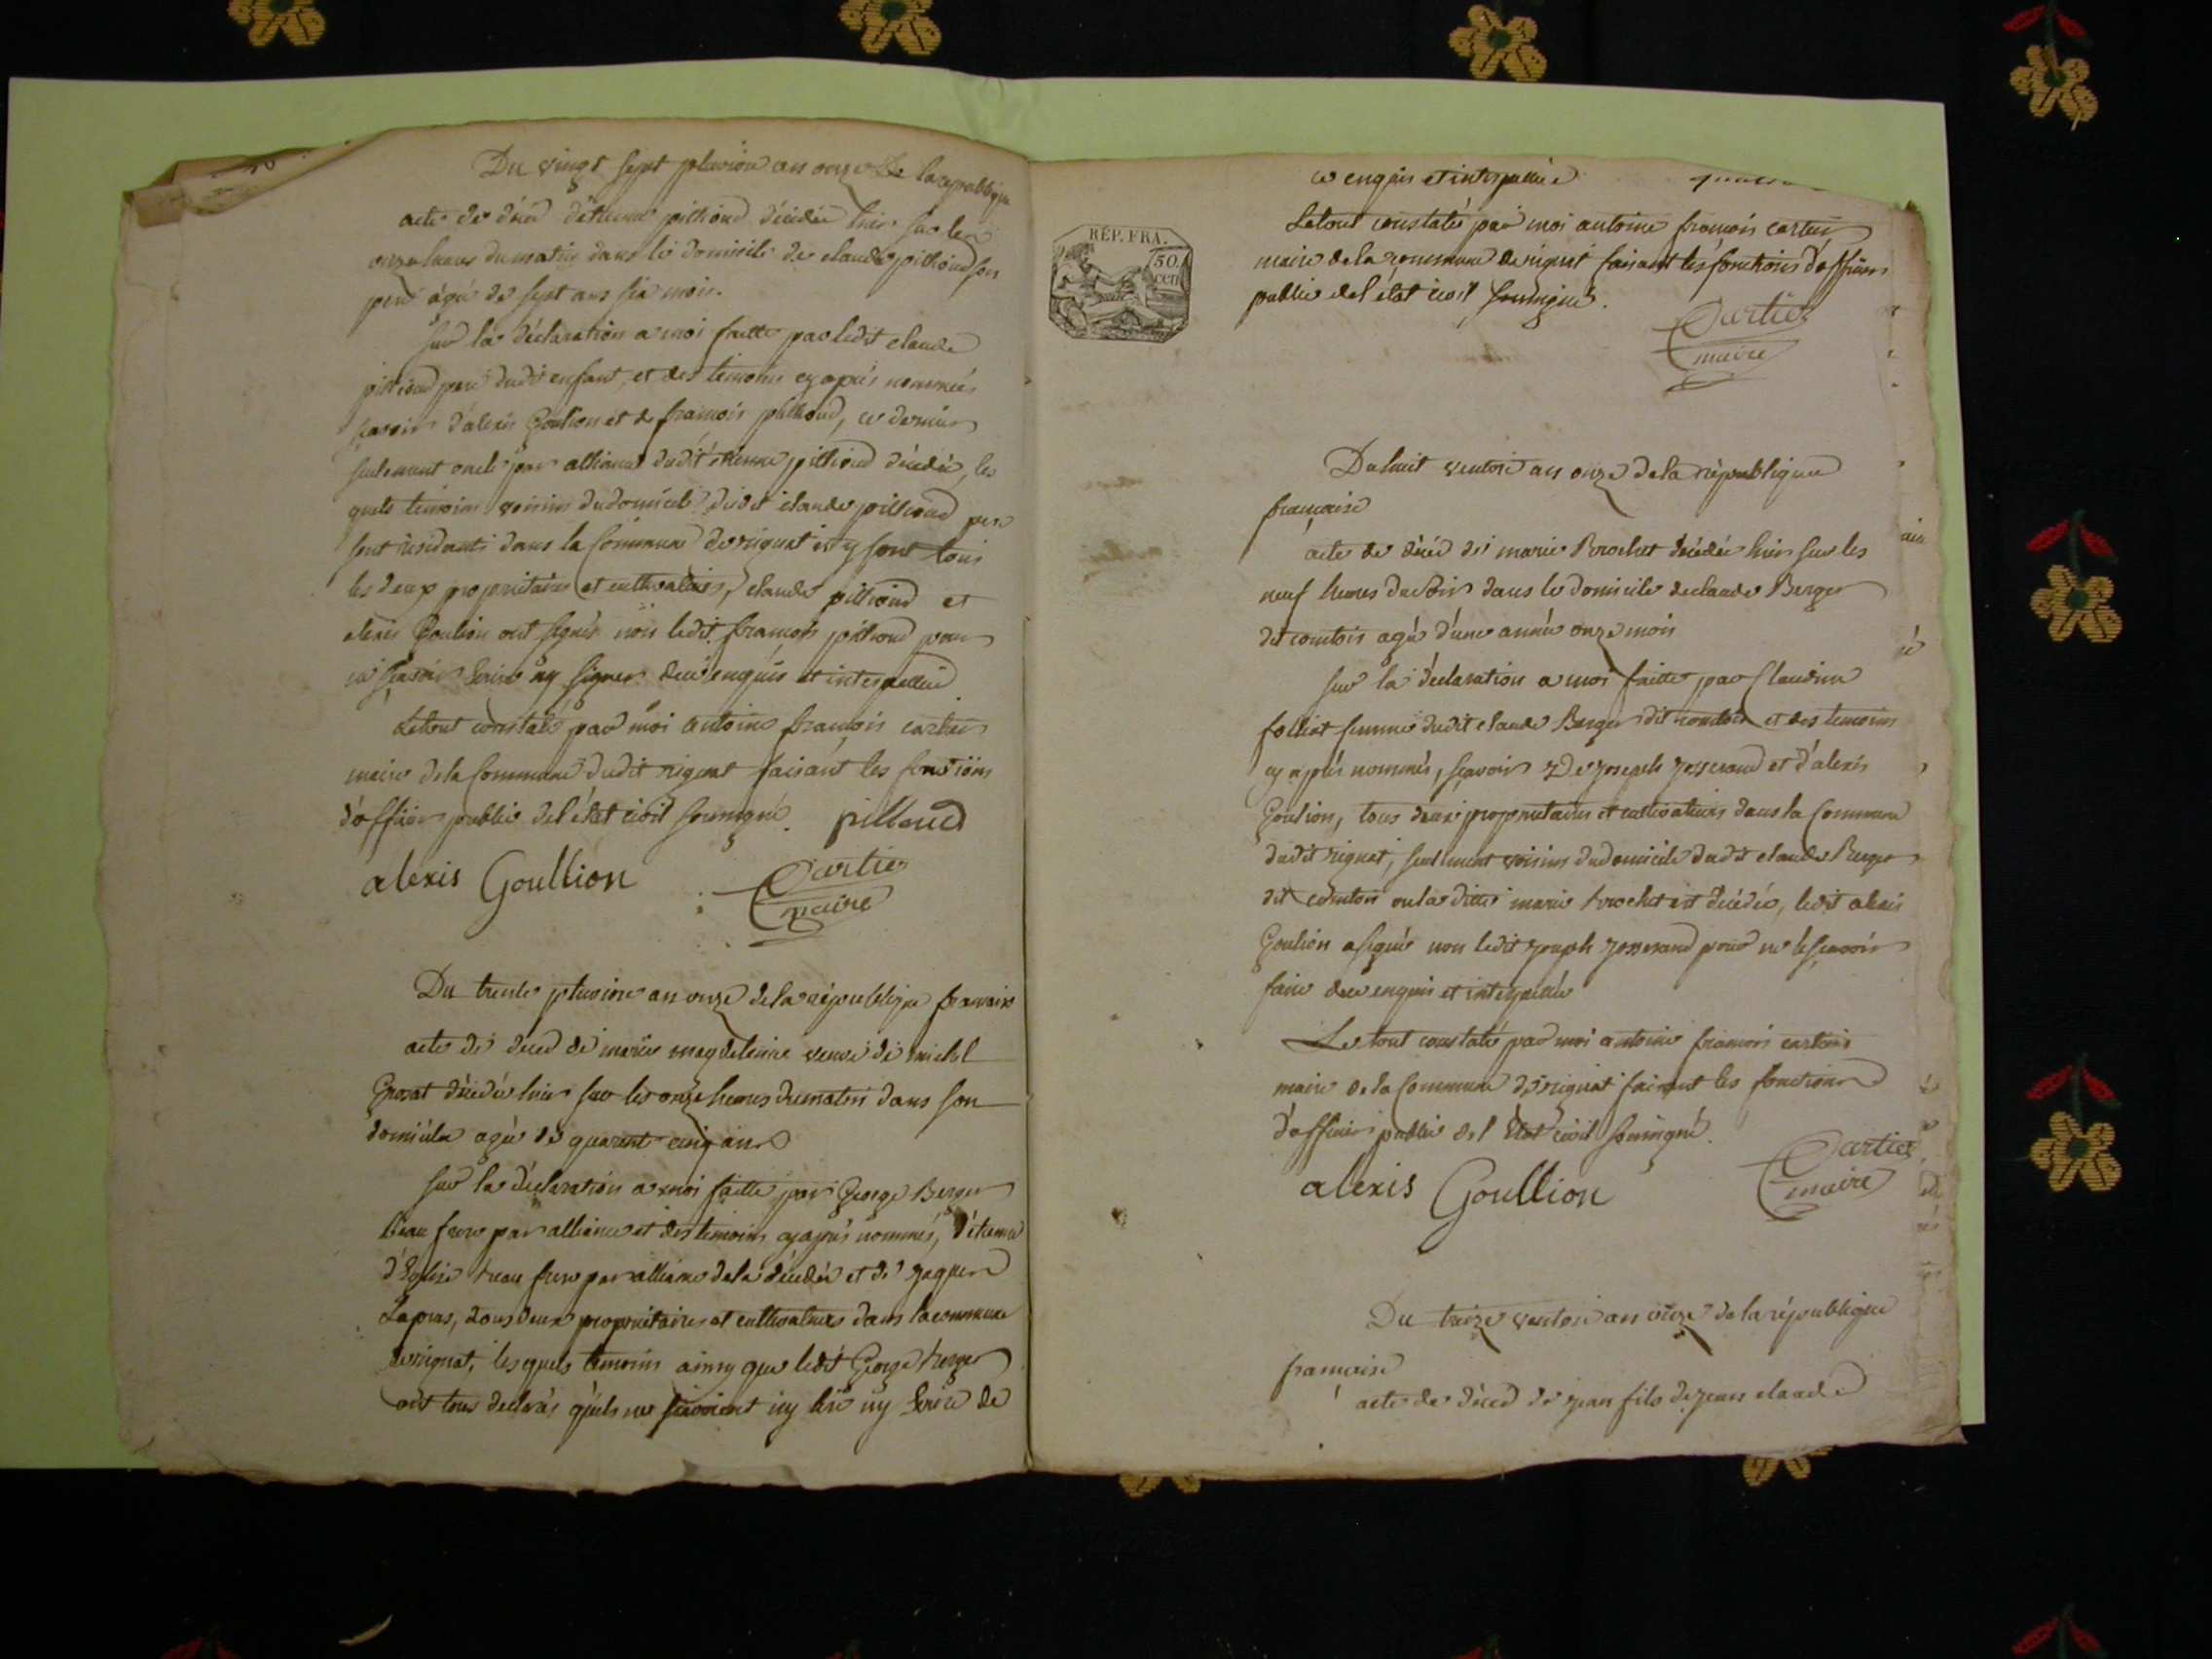 Du vingt sept pluviose an onze De la republique
acte de décé d'étienne pilliond décédée hier sur les
onze heures du matin dans le domicile de claude pilliond son
pere agée de sept ans six mois.
sur la déclaration a moi faitte par ledit claude
pilliond pere dudit enfant, et des temoins cy après nommées
scavoir d'alexis Goulion et de françois pilliond, ce dernier
seulement oncle par alliance dudit étienne pilliond décédée, les
quels temoins voisins du domicile dudit claude pilliond pere
sont residants dans la Commune de rignat et y sont tous
les deux propriétaires et cultivateurs, claude pilliond et
alexis Goulion ont signés non ledit françois pilliond pour
ne scavoir écrire ny signer de ce enquis et interpellée
Le tout constaté par moi antoine françois cartier
maire de la Commune dudit rignat faisant les fonctions
d'officier public de l'état civil soussigné. pilliond
alexis Goullion Cartier
maire
Du trente pluviose an onze de la république francaise
acte de deced de marie magdelaine veuve de michel
Grosat décédée hier sur les onze heures du matin dans son
domicile agée de quarent cinq ans
sur la déclaration a moi faitte par George Berger
beau frere par alliance et des temoins cy après nommés, d'étienne
d'Eglise beau frere par alliance de la décédée et de jaques
Lapras, tous deux propriétaires et cultivateurs dans la commune
de rignat, lesquels temoins ainsy que ledit George berger
ont tous declarés qu'ils ne scavoient ny lire ny écrire de
ce enquis et interpellée
RÉP. FRA.
50
cen
Le tout constaté par moi antoine françois cartier
maire de la commune de rignat faisant les fonctions d'officier
public de l'état civil soussigné.
Cartier
maire
Du huit ventose an onze de la république
française
acte de décé de marie Brochet décédée hier sur les
neuf heures du soir dans le domicile de claude Berger
dit comtois agée d'une année onze mois
sur la déclaration a moi faitte par Claudine
folliet femme dudit claude Berger dit comtois et des temoins
cy après nommés, scavoir De joseph josserand et d'alexis
Goulion, tous deux propriétaires et cultivateurs dans la Commune
dudit rignat, seulement voisins du domicile dudit claude Berger
dit comtois ou la ditte marie brochet est décédée, ledit alexis
Goulion a signée non ledit joseph josserand pour ne le scavoir
faire de ce enquis et interpellée
Le tout constaté par moi antoine françois cartier
maire de la Commune de rignat faisant les fonctions
d'officier public de l'état civil soussigné.
alexis Goullion Cartier
maire
Du treize ventose an onze de la république
française
acte de déced de jean fils de jean claude